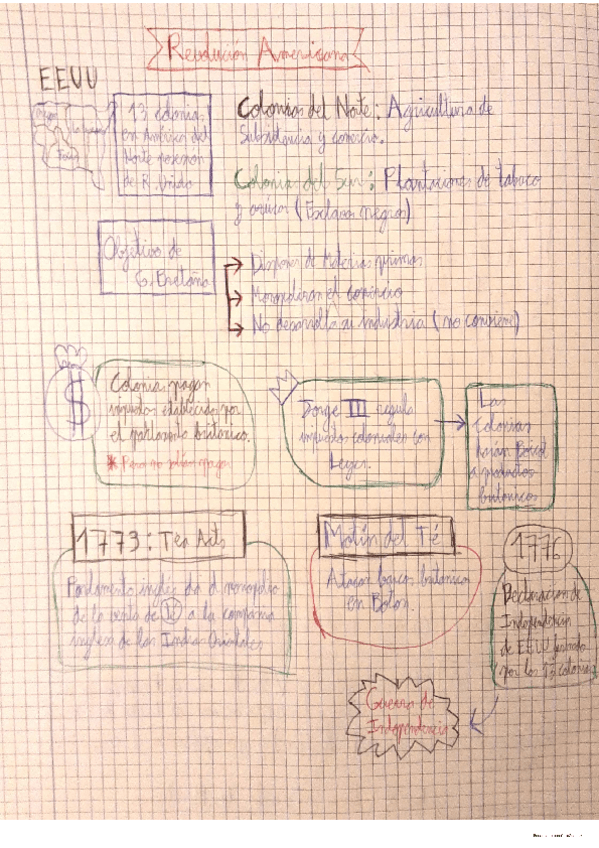 Revolución Americana
EEUU
13 colonias
en América del
Norte
de R. Unido
Colonias del Norte: Agricultura de
Subsistencia y comercio.
Colonias del Sur: Plantaciones de tabaco
y (Esclavos negros)
Objetivo de
G. Bretaña
Disponer de Materias primas
el comercio
No desarrollar industria (no conviene)
$
Colonias pagan
impuestos establecidos por
el parlamento británico.
* Pero no solían pagar
Jorge III regula
impuestos coloniales con
Leyes.
Las
Colonias
harán Boicot
a productos
británicos
1773: Tea Acts
Parlamento inglés da el monopolio
de la venta de Té a la compañía
inglesa de las Indias Orientales
Motín del Té
Atacan barcos británicos
en Boston.
1776
Declaración de
Independencia
de EEUU firmada
por las 13 colonias
Guerra de
Independencia